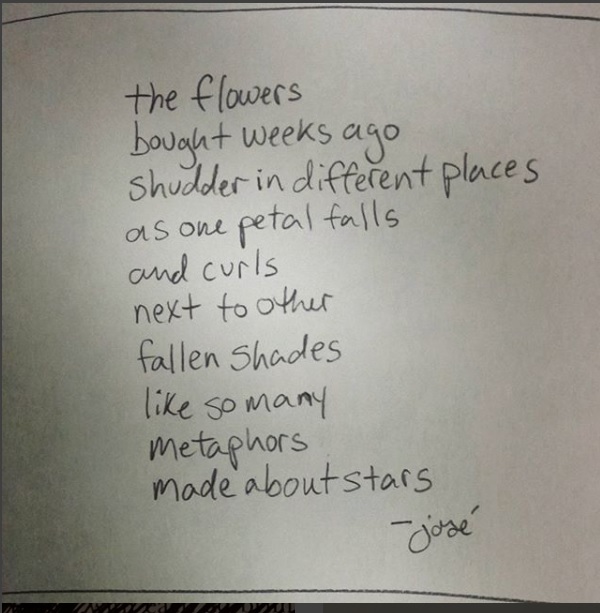 the flowers
bought weeks ago
shudder in different places
as one petal falls
and curls
next to other
fallen shades
like so many
metaphors
made about stars
-josé